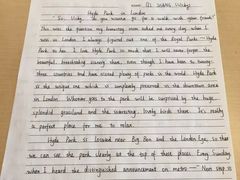 Hyde Park in London
"So, Vicky, do you wanna go for a walk with your friend
This was the question my homestay mom asked me every day when I
was in London. I always figured out one of the Royal Parks — Hyde
Park to her. I love Hyde Park so much that I will never forget the
beautiful, breathtaking scenery there, even though I have been to twenty-
three countries and have visited plenty of parks in the world. Hyde Park
is the unique one which is completely preserved in the downtown area
in London. Whoever goes to the park will be surprised by the huge
splendid grassland and the scurrying, lovely birds there. It's really
a perfect place for me to relax.
Hyde Park is located near Big Ben and the London Eye, so that
we can see the park clearly at the top of these places. Every Sunday
when I heard the distinguished announcement on metro — "Next stop is